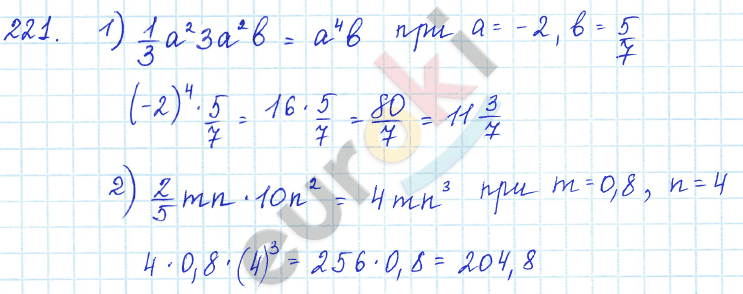 221. 1) 1/3 a²3a²b = a⁴b при a = -2, b = 5/7
(-2)⁴ · 5/7 = 16 · 5/7 = 80/7 = 11 3/7
2) 2/5 mn · 10n² = 4mn³ при m = 0,8, n = 4
4 · 0,8 · (4)³ = 256 · 0,8 = 204,8
euroki